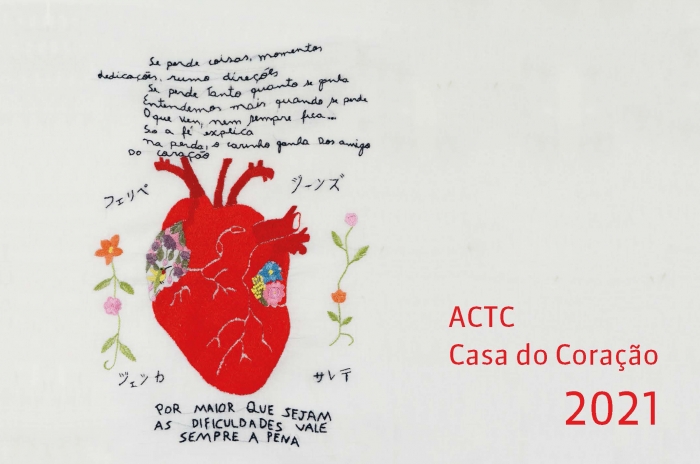 Se perde coisas, momentos
dedicações, rumo direções
Se perde tanto quanto se ganha
Entendemos mais quando se perde
O que vem, nem sempre fica...
Só a fé explica
na perda, o carinho ganha dos amigo
DO coração
フェリペ
ジーンズ
ジェシカ
サレテ
POR MAIOR QUE SEJAM
AS DIFICULDADES VALE
SEMPRE A PENA
ACTC
Casa do Coração
2021